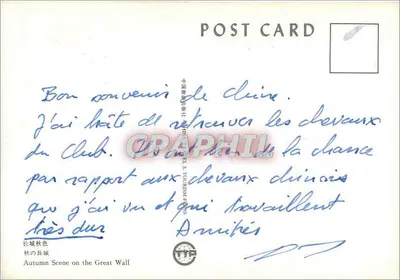 POST CARD
Bon souvenir de Chine.
J'ai hâte de retrouver les chevaux
du Club. Ils ont bien de la chance
par rapport aux chevaux chinois
que j'ai vu et qui travaillent
très dur Amitiés
CARTAPHIL
长城秋色
秋の長城
Autumn Scene on the Great Wall
TTP